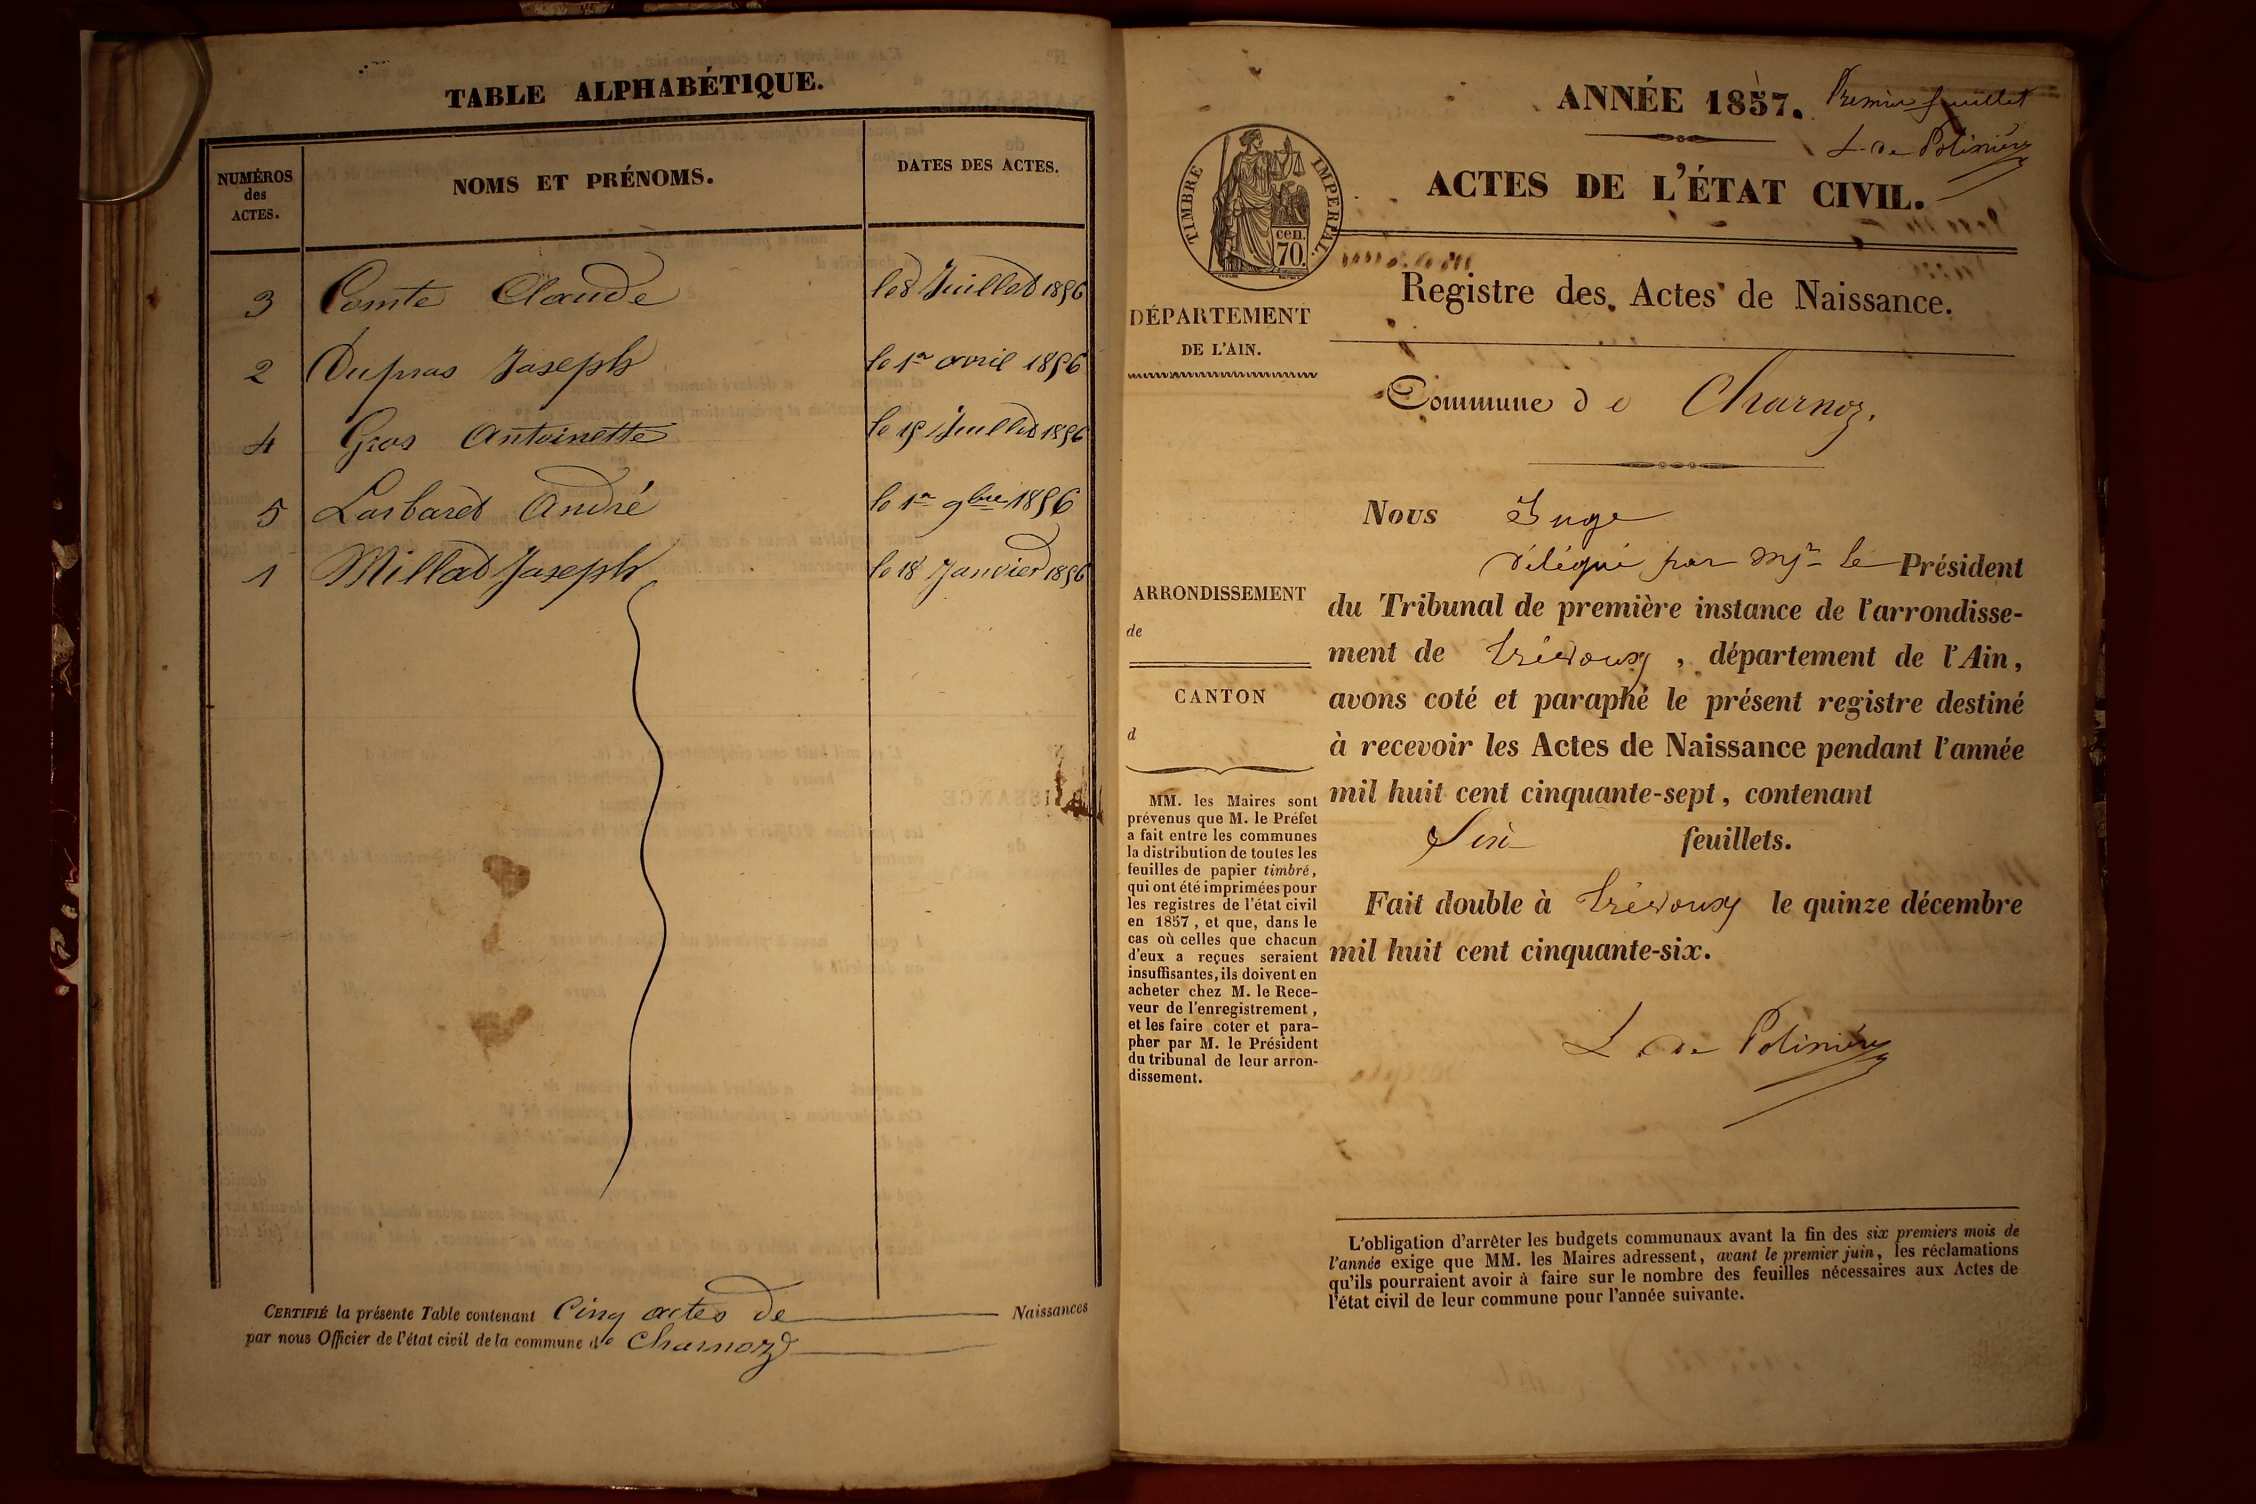 TABLE ALPHABÉTIQUE.
NUMÉROS des ACTES.
NOMS ET PRÉNOMS.
DATES DES ACTES.
3 Comte Claude le 8 Juillet 1856
2 Dupras Joseph le 1er avril 1856
4 Gros Antoinette le 15 Juillet 1856
5 Lasbaret André le 1er 9bre 1856
1 Millet Joseph le 18 Janvier 1856
CERTIFIÉ la présente Table contenant Cinq actes de Naissances
par nous Officier de l'état civil de la commune de Charnoz
ANNÉE 1857.
Premier feuillet
L. de Polinière
ACTES DE L'ÉTAT CIVIL.
TIMBRE IMPERIAL.
cen.
70.
Registre des Actes de Naissance.
DÉPARTEMENT
DE L'AIN.
Commune de Charnoz.
Nous Juge
délégué par Mr le Président
du Tribunal de première instance de l'arrondisse-
ment de Trévoux, département de l'Ain,
avons coté et paraphé le présent registre destiné
à recevoir les Actes de Naissance pendant l'année
mil huit cent cinquante-sept, contenant
Six feuillets.
Fait double à Trévoux le quinze décembre
mil huit cent cinquante-six.
L. de Polinière
ARRONDISSEMENT
de
CANTON
d
MM. les Maires sont
prévenus que M. le Préfet
a fait entre les communes
la distribution de toutes les
feuilles de papier timbré,
qui ont été imprimées pour
les registres de l'état civil
en 1857, et que, dans le
cas où celles que chacun
d'eux a reçues seraient
insuffisantes, ils doivent en
acheter chez M. le Rece-
veur de l'enregistrement,
et les faire coter et para-
pher par M. le Président
du tribunal de leur arron-
dissement.
L'obligation d'arrêter les budgets communaux avant la fin des six premiers mois de
l'année exige que MM. les Maires adressent, avant le premier juin, les réclamations
qu'ils pourraient avoir à faire sur le nombre des feuilles nécessaires aux Actes de
l'état civil de leur commune pour l'année suivante.